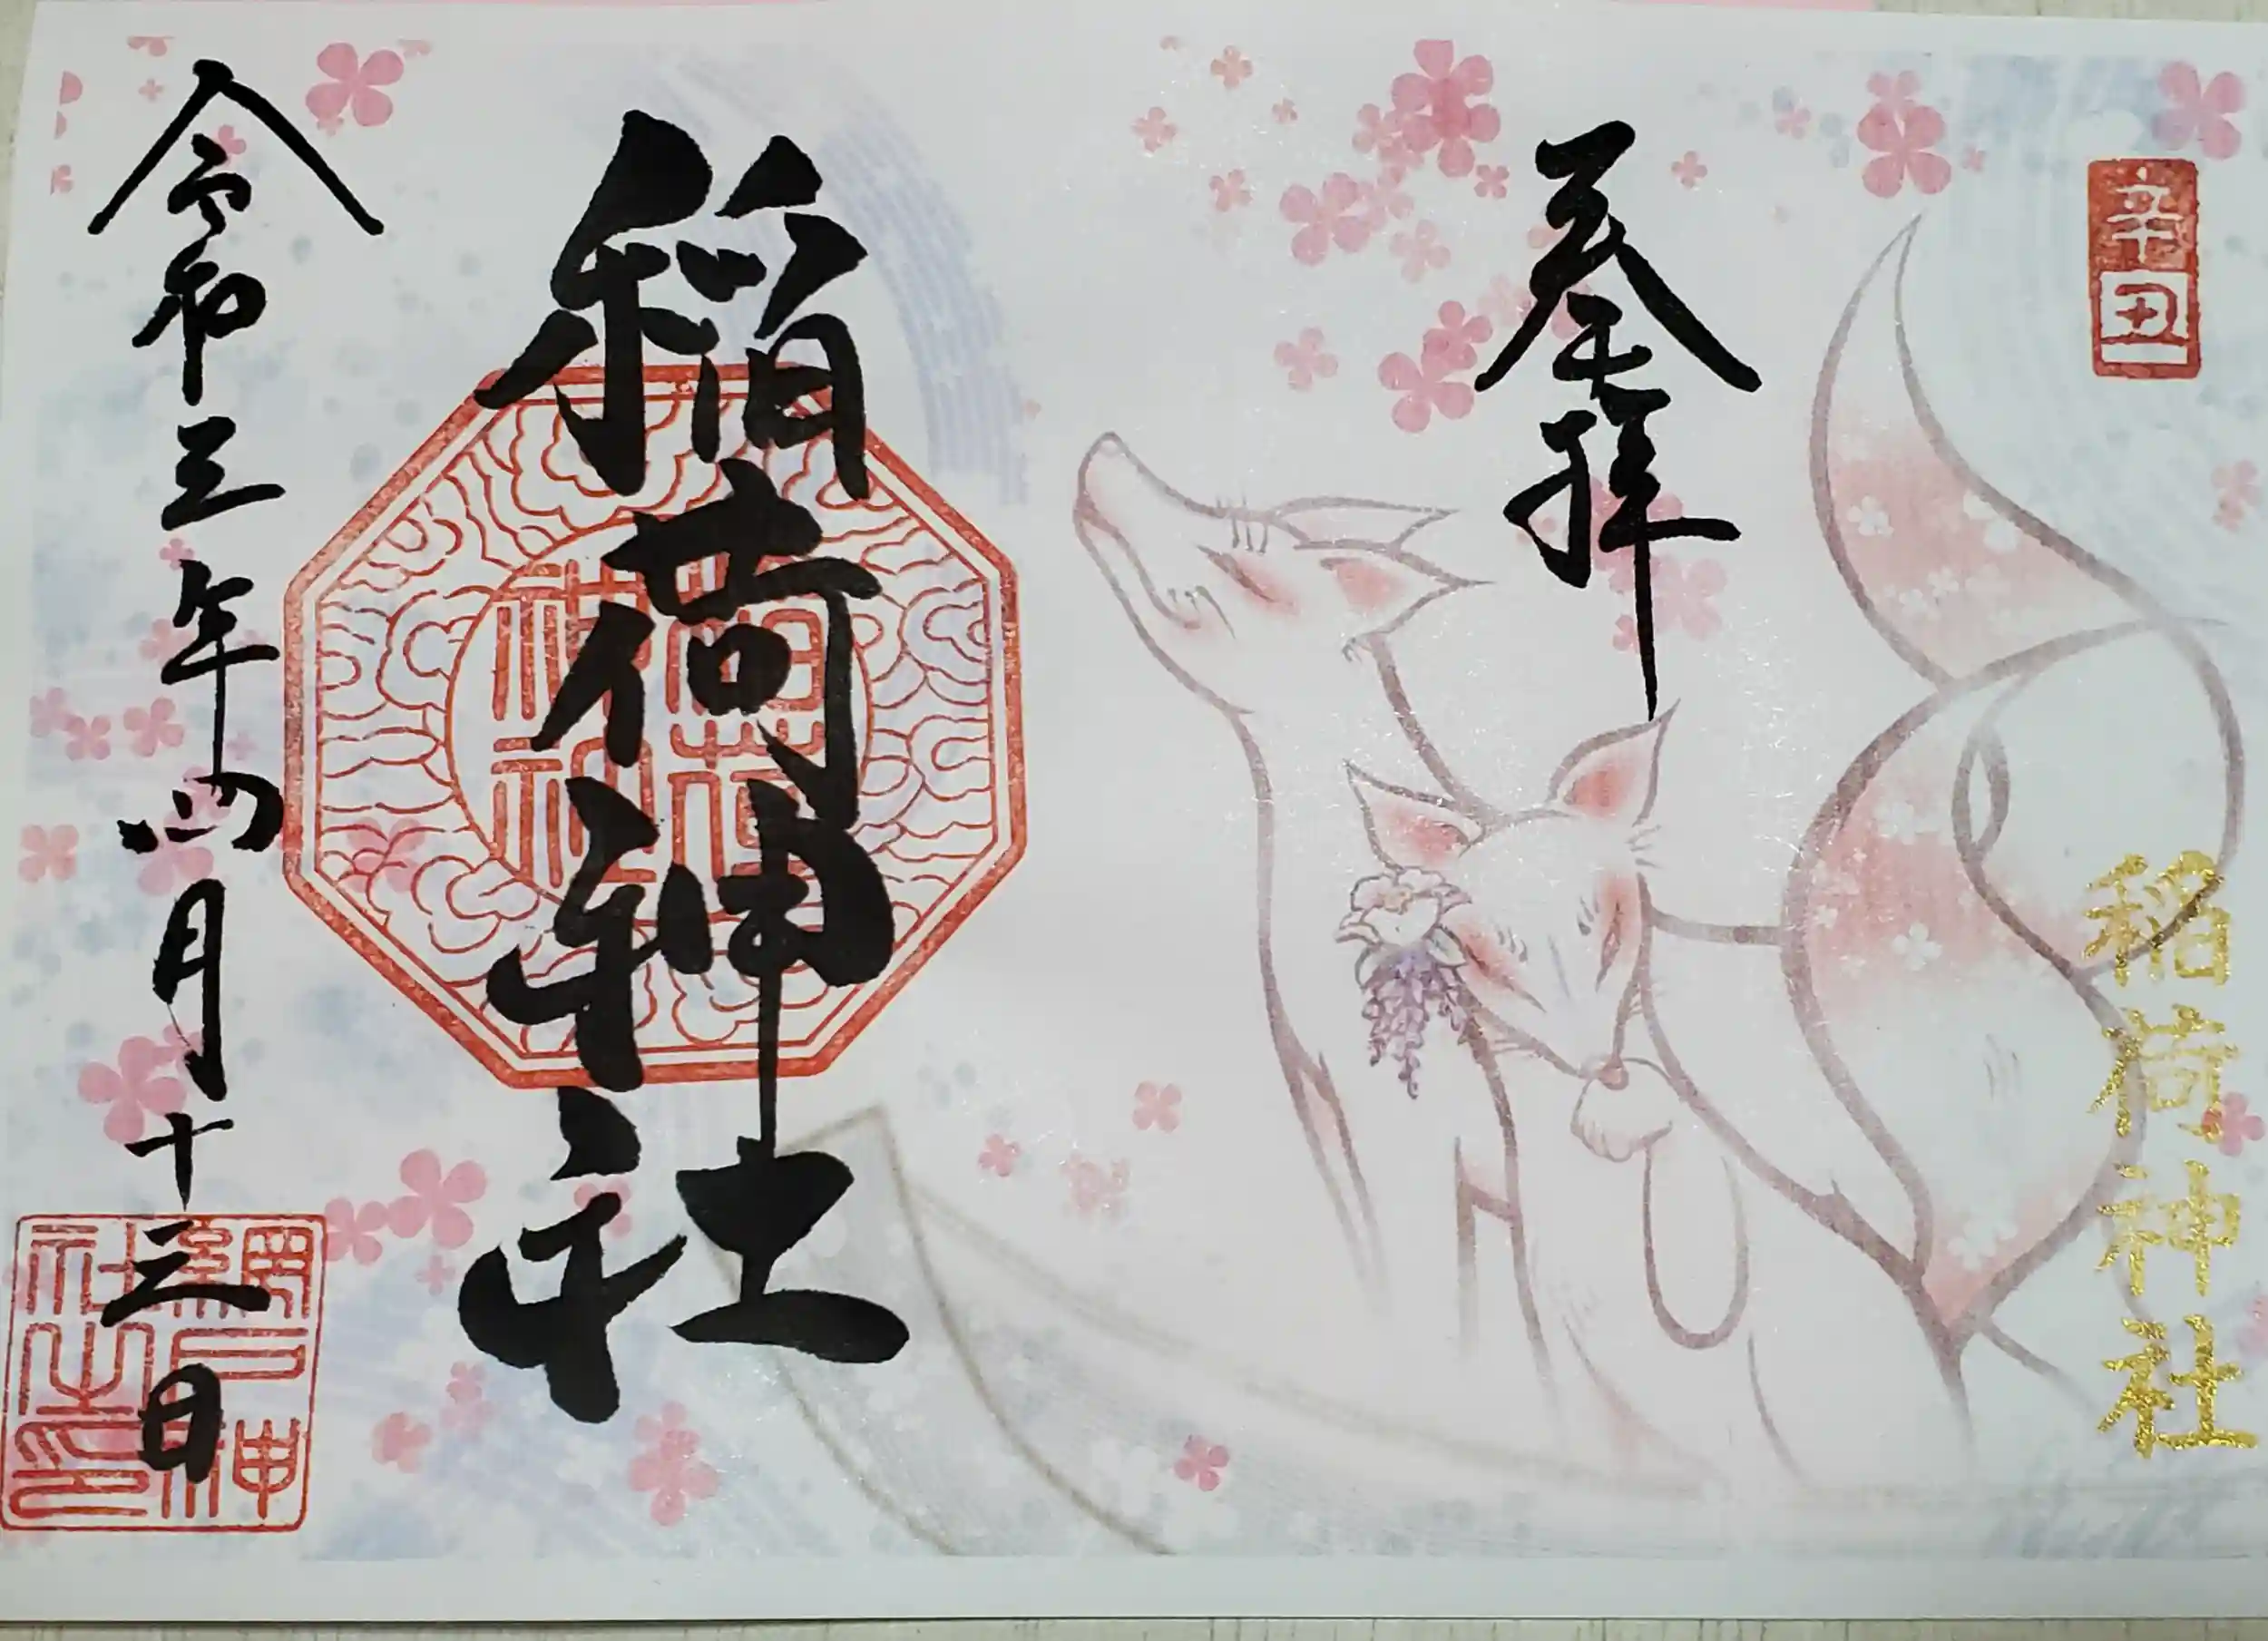 辛丑
奉拝
稲荷神社
稲荷神社
稲荷神社
令和三年四月十三日
網戸神社之印